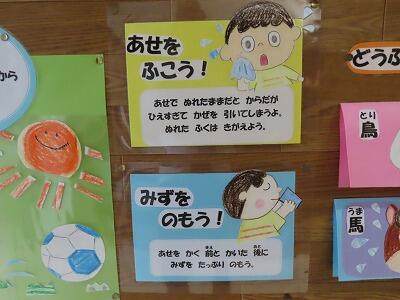 から
あせを
ふこう!
あせで ぬれたままだと からだが
ひえすぎて かぜを 引いてしまうよ。
ぬれた ふくは きがえよう。
みずを
のもう!
あせを かく 前と かいた 後に
みずを たっぷり のもう。
どうぶ
とり
鳥
うま
馬